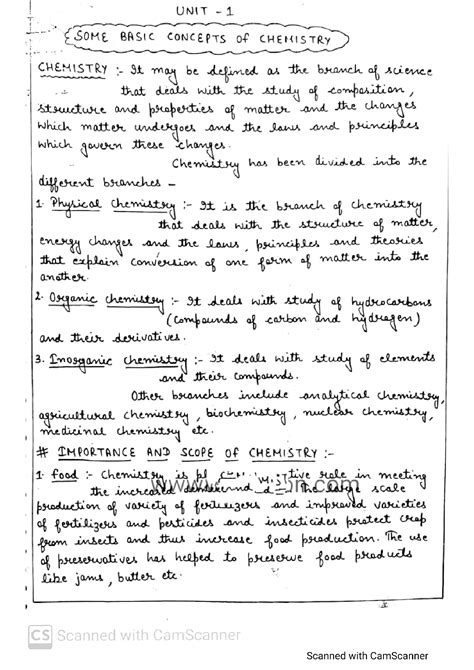 UNIT - 1
SOME BASIC CONCEPTS OF CHEMISTRY
CHEMISTRY :- It may be defined as the branch of science
that deals with the study of composition,
structure and properties of matter and the changes
which matter undergoes and the laws and principles
which govern these changes.
Chemistry has been divided into the
different branches -
1. Physical Chemistry :- It is the branch of chemistry
that deals with the structure of matter,
energy changes and the laws, principles and theories
that explain conversion of one form of matter into the
another.
2. Organic Chemistry :- It deals with study of hydrocarbons
(compounds of carbon and hydrogen)
and their derivatives.
3. Inorganic Chemistry :- It deals with study of elements
and their compounds.
Other branches include analytical chemistry,
agricultural chemistry, biochemistry, nuclear chemistry,
medicinal chemistry etc.
# IMPORTANCE AND SCOPE OF CHEMISTRY :-
1. Food :- Chemistry is role in meeting
the increased demand The large scale
production of variety of fertilizers and improved varieties
of fertilizers and pesticides and insecticides protect crop
from insects and thus increase food production. The use
of preservatives has helped to preserve food products
like jams, butter etc.
CS Scanned with CamScanner
Scanned with CamScanner